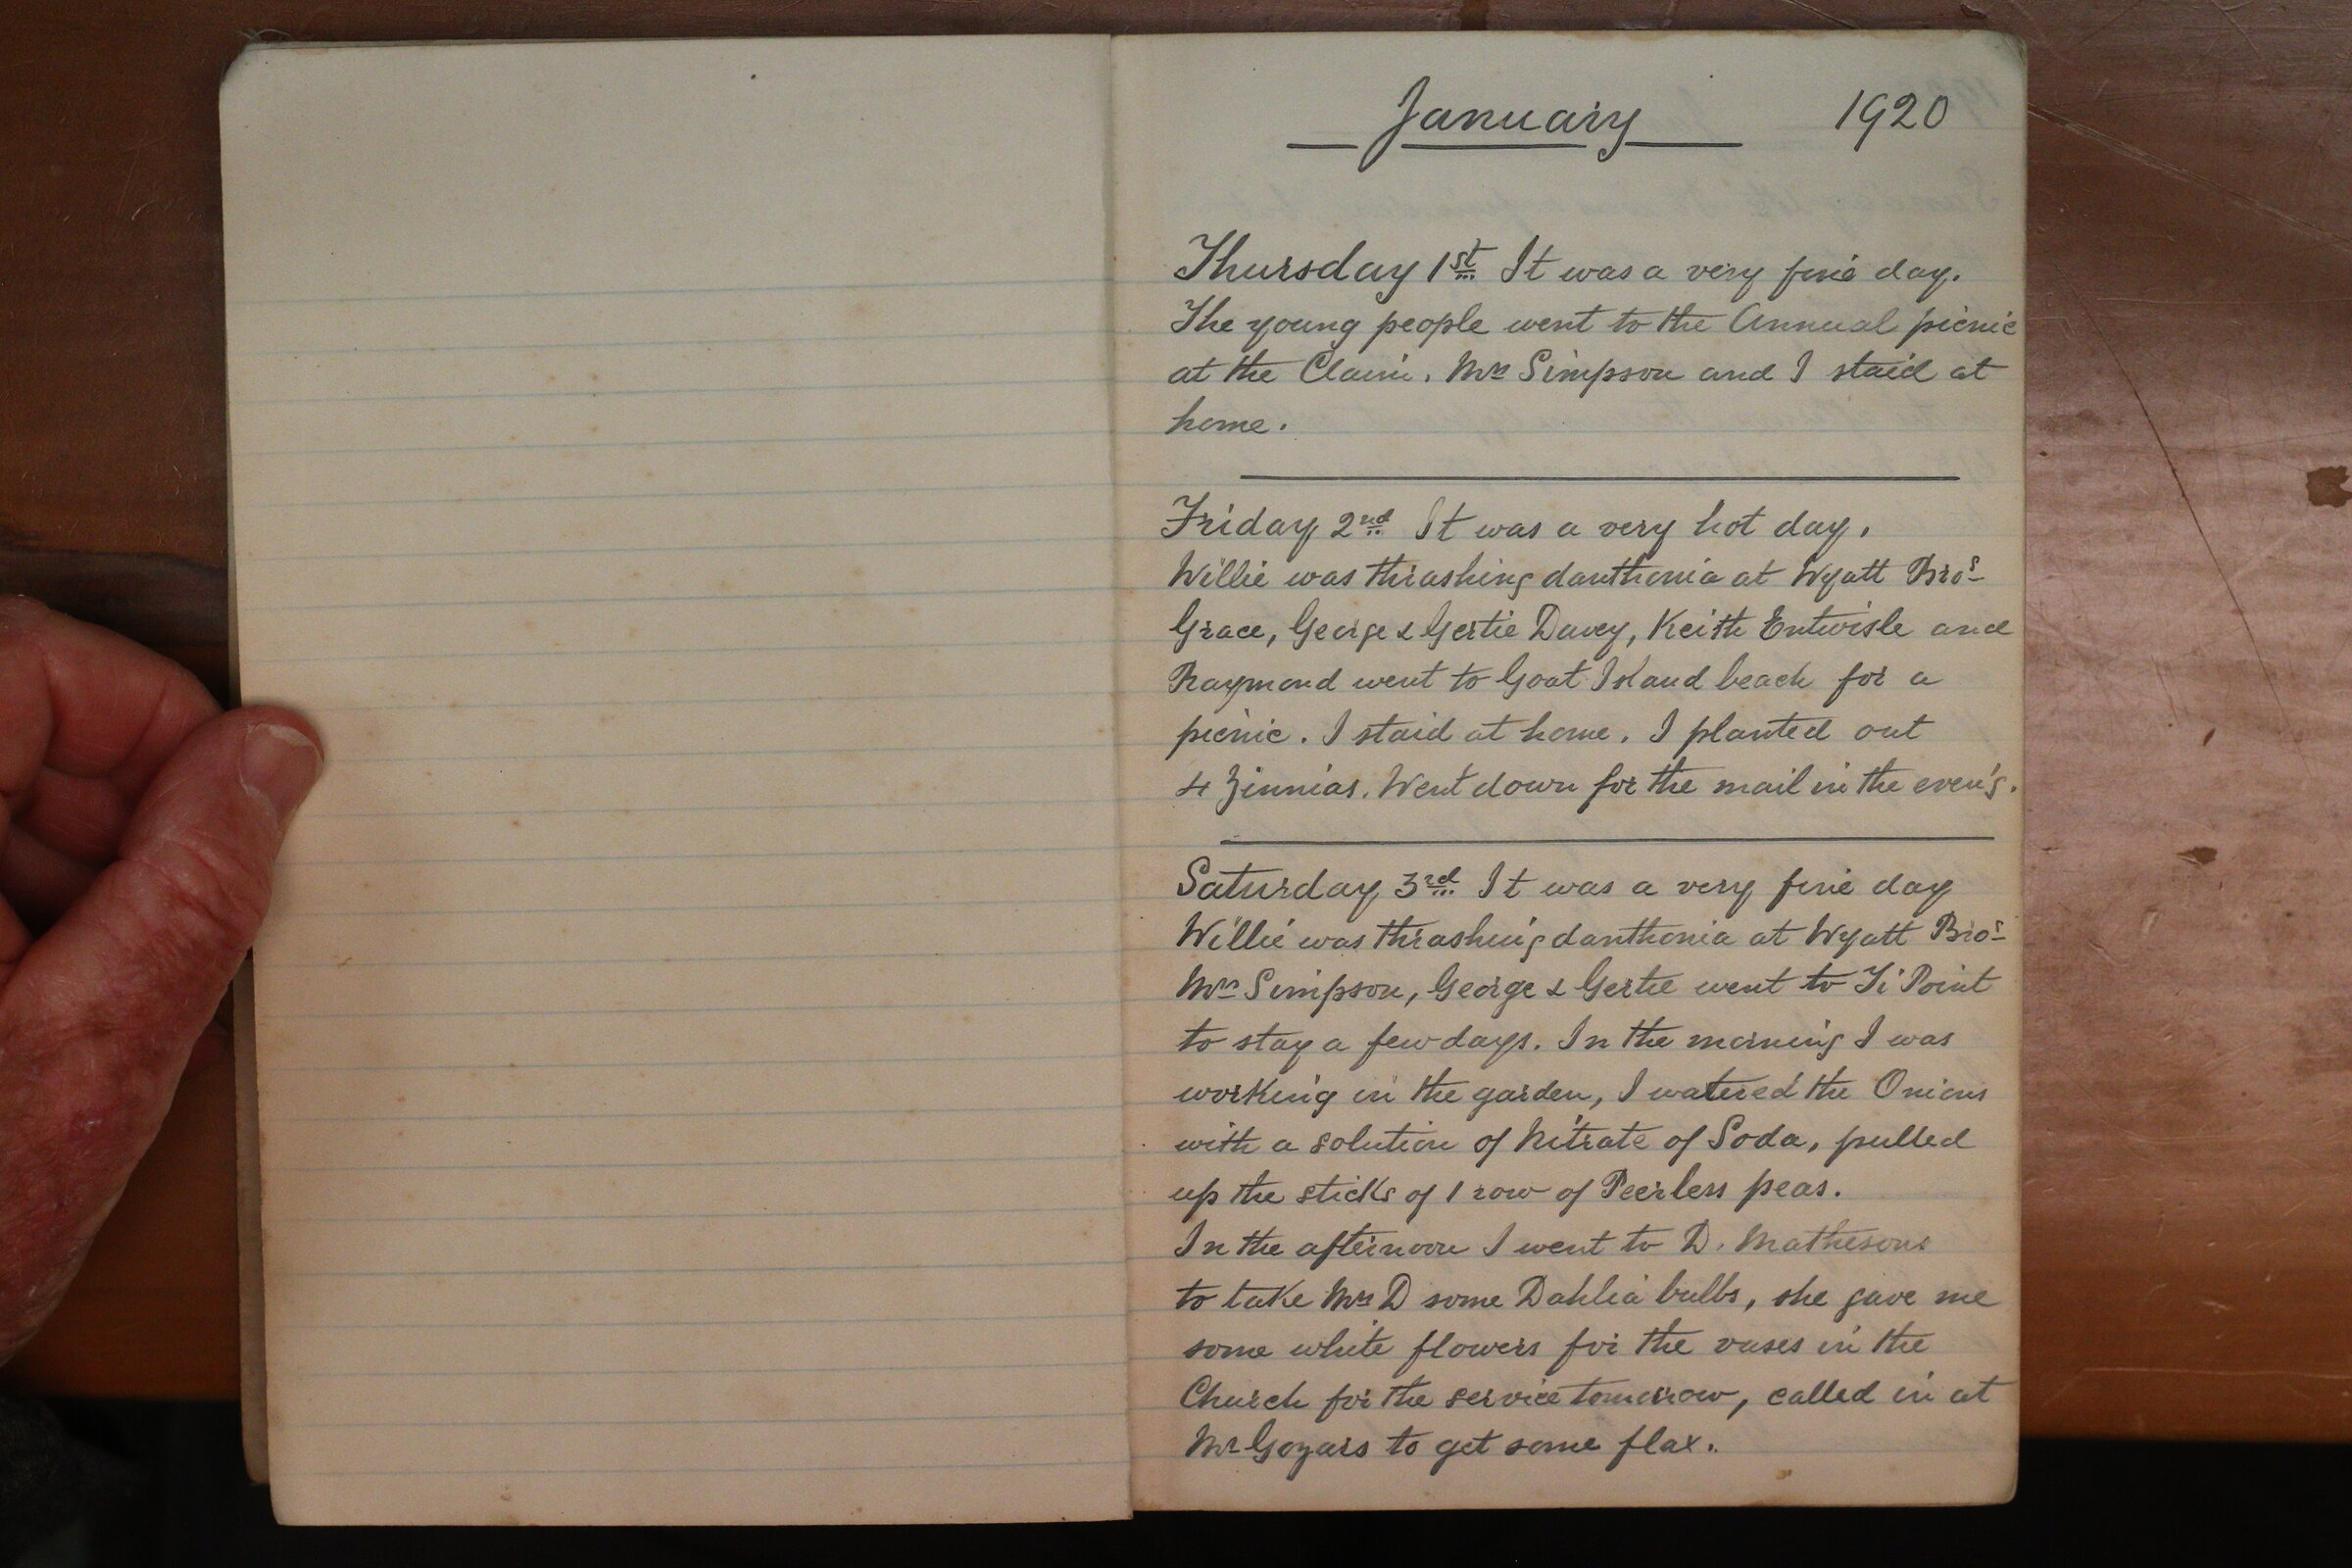 January 1920
Thursday 1st It was a very fine day.
The young people went to the Annual picnic
at the Claim. Mrs Simpson and I staid at
home.
Friday 2nd It was a very hot day.
Willie was thrashing danthonia at Wyatt Bros
Grace, George & Gertie Davey, Keith Entwisle and
Raymond went to Goat Island beach for a
picnic. I staid at home. I planted out
4 Zinnias. Went down for the mail in the even'g.
Saturday 3rd It was a very fine day
Willie was thrashing danthonia at Wyatt Bros
Mrs Simpson, George & Gertie went to Ti Point
to stay a few days. In the morning I was
working in the garden, I watered the Onions
with a solution of Nitrate of Soda, pulled
up the sticks of 1 row of Peerless peas.
In the afternoon I went to D. Mathesons
to take Mrs D some Dahlia bulbs, she gave me
some white flowers for the vases in the
Church for the service tomorrow, called in at
Mr Gozars to get some flax.